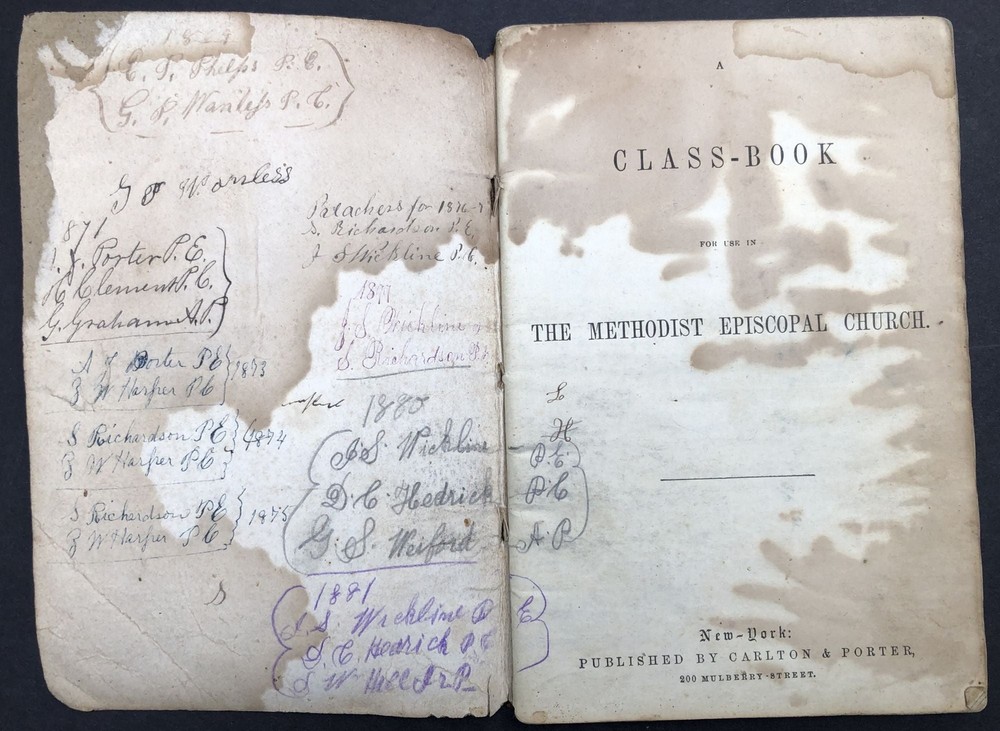 E. S. Phelps P. E.
G. P. Wanless P. C.
G P Wanless
1871
Porter P. E.
Clement P. C.
G. Graham A. P.
A J Porter P E } 1873
Z W Harper P C
S Richardson P E } 1874
Z W Harper P C
S Richardson P E } 1875
Z W Harper P C
S
Preachers for 1876-7
S. Richardson P. E.
J S Wickline P. C.
1877
J. S. Wickline
S. Richardson P. E.
1880
J. S. Wickline P. E.
D. C. Hedrick P C
G. S. Weiford A. P
1881
J. S. Wickline P E
D. C. Hedrick P C
S W Hill Jr P
A
CLASS-BOOK
FOR USE IN
THE METHODIST EPISCOPAL CHURCH.
L
H
New-York:
PUBLISHED BY CARLTON & PORTER,
200 MULBERRY-STREET.